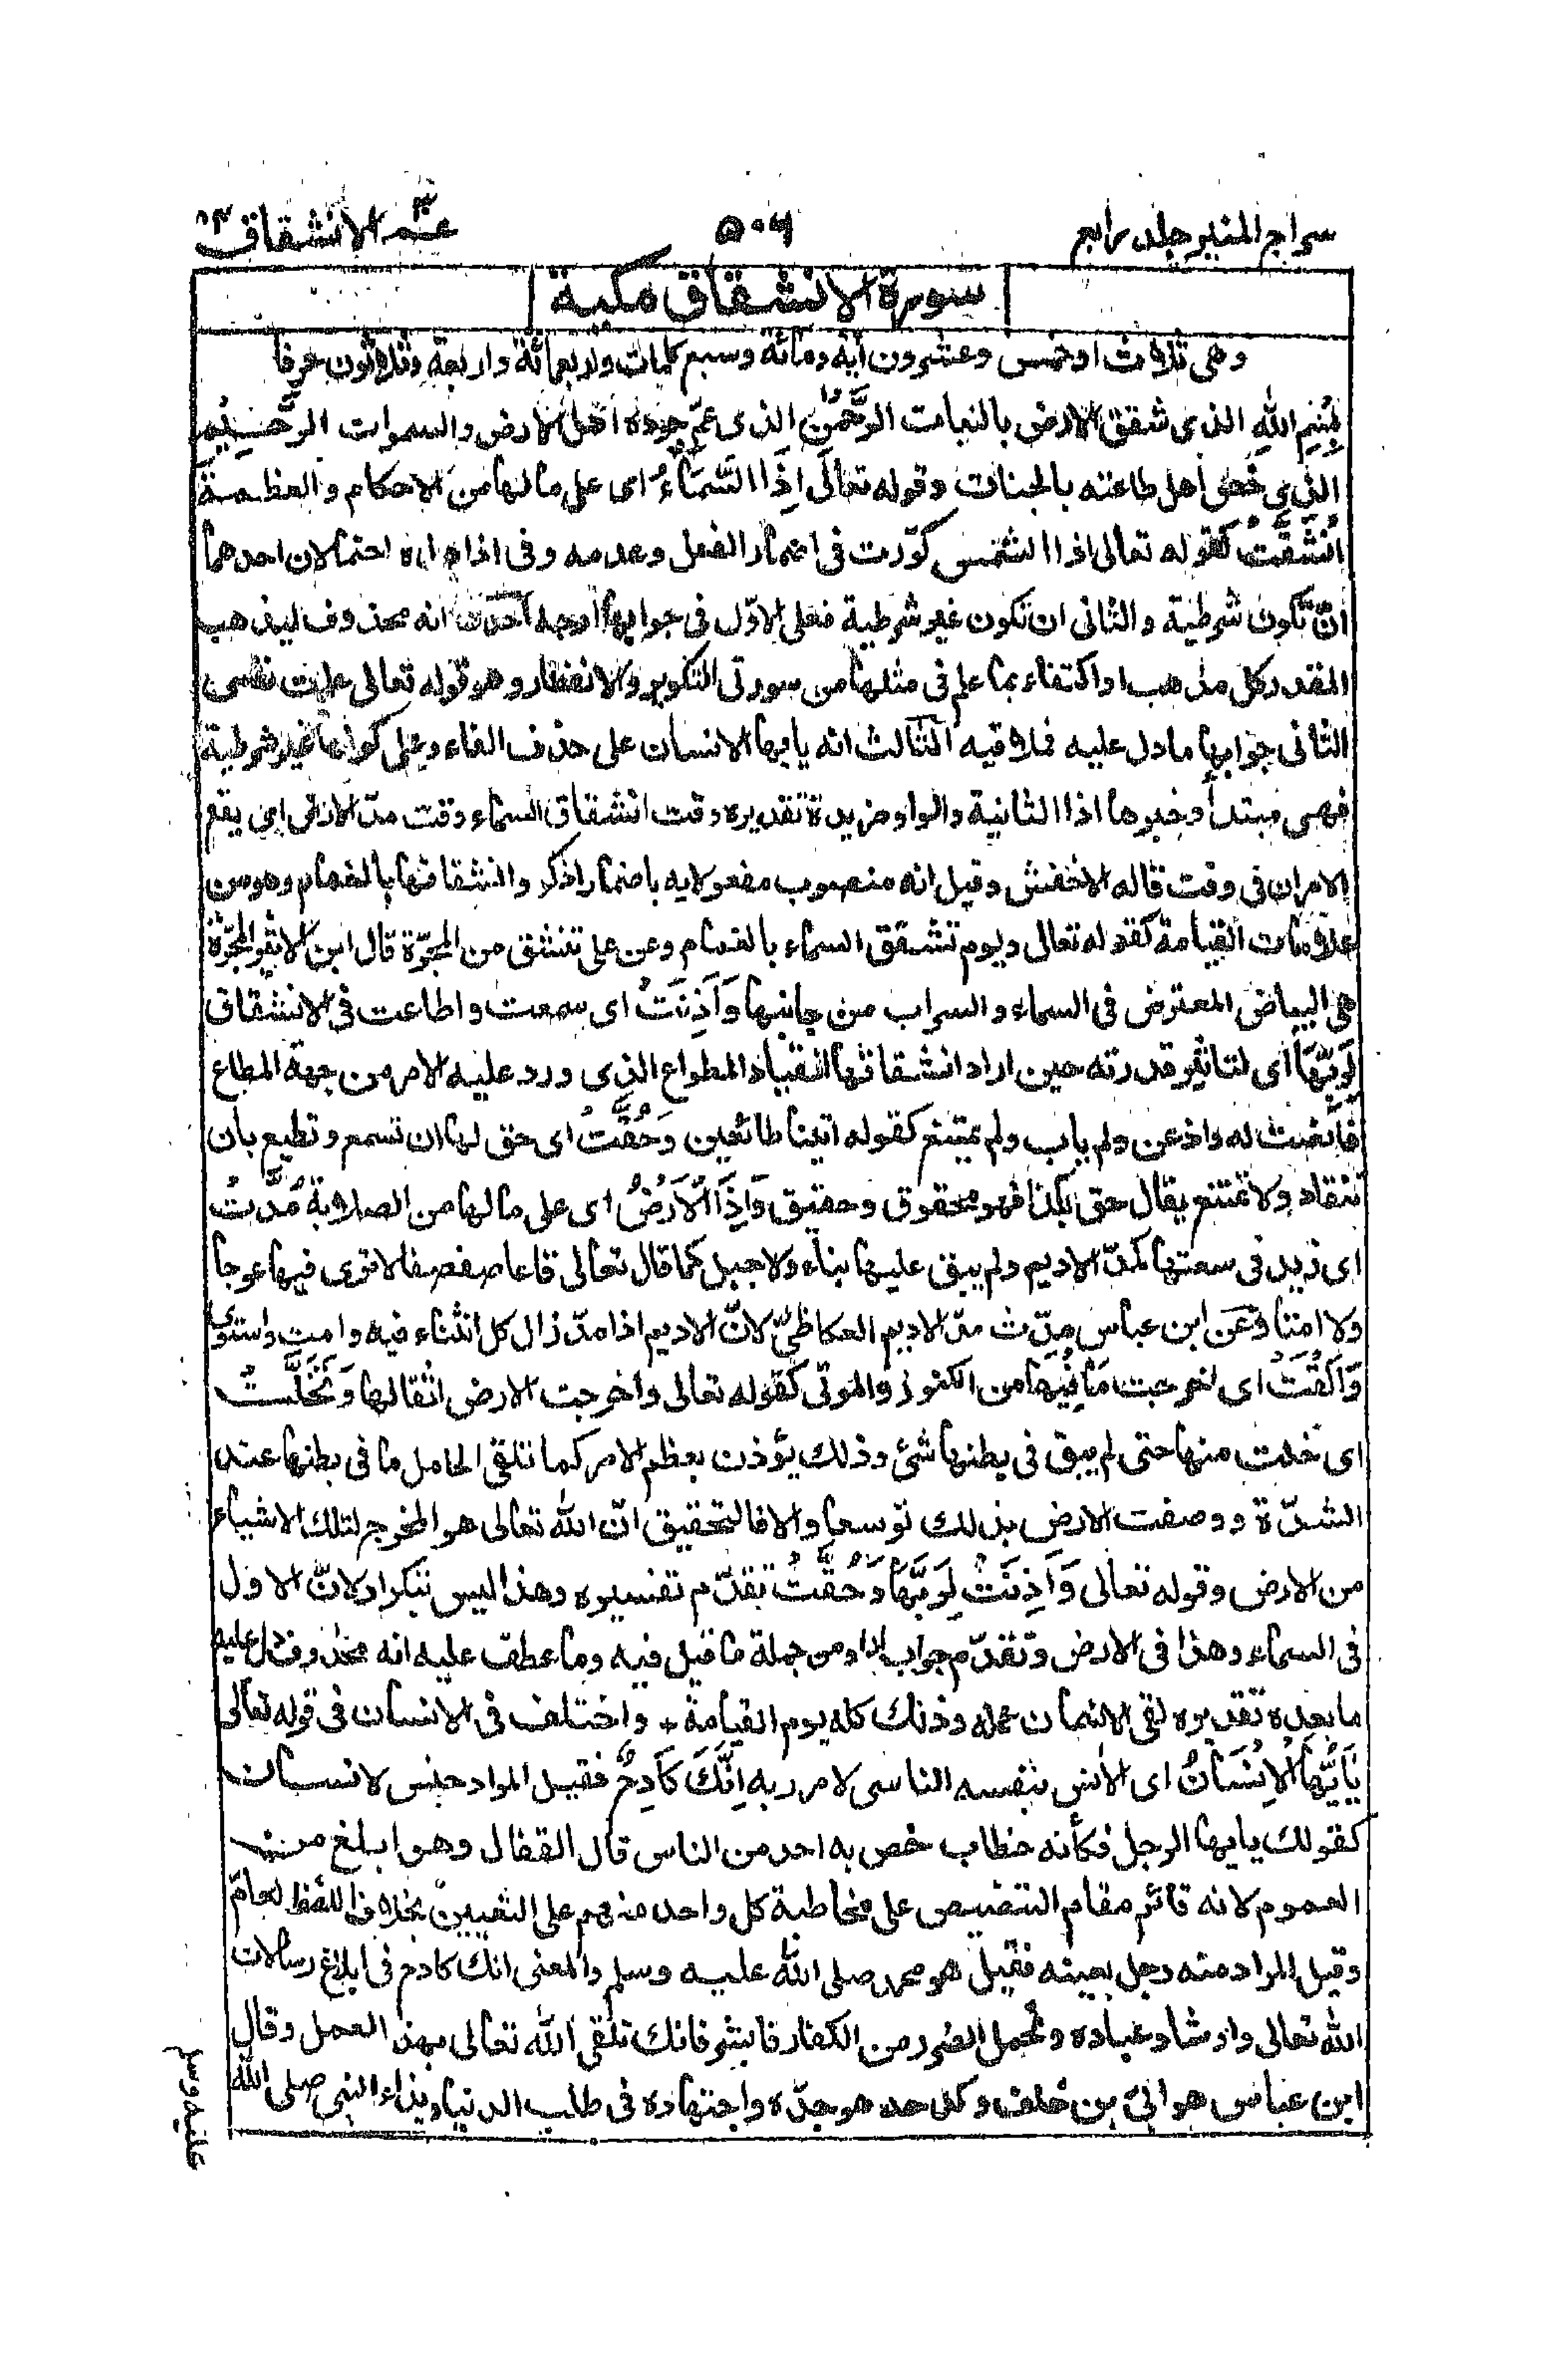 سراج المنير جلد رابع
٥٠٦
عمّ ٣٠ الانشقاق ٨٤
سورة الانشقاق مكية
وهى ثلاث او خمس وعشرون آية ومائة وسبع كلمات واربعمائة واربعة وثلاثون حرفا
بِسْمِ اللهِ الذى شقق الارض بالنبات الرَّحْمٰنِ الذى عمّ جوده اهل الارض والسموات الرَّحِيْمِ
الذى خص اهل طاعته بالجنات وقوله تعالى اِذَا السَّمَآءُ اى على ما لها من الاحكام والعظمة
انْشَقَّتْ كقوله تعالى اذا الشمس كوّرت فى اضمار الفعل وعدمه وفى اذا هذه احتمالان احدهما
ان تكون شرطية والثانى ان تكون غير شرطية فعلى الاوّل فى جوابها اوجه احدها انه محذوف ليذهب
المقدر كل مذهب او اكتفاء بما علم فى مثلها من سورتى التكوير والانفطار وهو قوله تعالى علمت نفس
الثانى جوابها ما دل عليه فملاقيه الثالث انه يايها الانسان على حذف الفاء وعلى كونها غير شرطية
فهى مبتدأ وخبرها اذا الثانية والواو مزيدة تقديره وقت انشقاق السماء وقت مدّ الارض اى يقع
الامران فى وقت قاله الاخفش وقيل انه منصوب مفعولا به باضمار اذكر وانشقاقها بالغمام وهو من
علامات القيامة كقوله تعالى ويوم تشقق السماء بالغمام وعن على تنشق من المجرّة قال ابن الاثير المجرّة
هى البياض المعترض فى السماء والسراب من جانبها وَاَذِنَتْ اى سمعت واطاعت فى الانشقاق
لِرَبِّهَا اى لتاثير قدرته حين اراد انشقاقها انقياد المطواع الذى ورد عليه الامر من جهة المطاع
فانصت له واذعن ولم ياب ولم يمتنع كقوله اتينا طائعين وَحُقَّتْ اى حق لها ان تسمع وتطيع بان
تنقاد ولا تمتنع يقال حق بكذا فهو محقوق وحقيق وَاِذَا الْاَرْضُ اى على ما لها من الصلابة مُدَّتْ
اى زيد فى سعتها كمدّ الاديم ولم يبق عليها بناء ولا جبل كما قال تعالى قاعا صفصفا لا ترى فيها عوجا
ولا امتا وعن ابن عباس مدّت مدّ الاديم العكاظىّ لانّ الاديم اذا مدّ زال كل انثناء فيه وامت واستوى
وَاَلْقَتْ اى اخرجت مَا فِيْهَا من الكنوز والموتى كقوله تعالى واخرجت الارض اثقالها وَتَخَلَّتْ
اى خلت منها حتى لم يبق فى بطنها شئ وذلك يؤذن بعظم الامر كما تلقى الحامل ما فى بطنها عند
الشدّة ووصفت الارض بذلك توسعا والا فالتحقيق انّ الله تعالى هو المخرج لتلك الاشياء
من الارض وقوله تعالى وَاَذِنَتْ لِرَبِّهَا وَحُقَّتْ تقدّم تفسيره وهذا ليس بتكرار لانّ الاول
فى السماء وهذا فى الارض وتقدّم جواب اذا ومن جملة ما قيل فيه وما عطف عليه انه محذوف دل عليه
ما بعده تقديره لقى الانسان عمله وذلك كله يوم القيامة + واختلف فى الانسان فى قوله تعالى
يٰاَيُّهَا الْاِنْسَانُ اى الآنس بنفسه الناسى لامر ربه اِنَّكَ كَادِحٌ فقيل المراد جنس لانسان
كقولك يايها الرجل فكأنه خطاب خص به احد من الناس قال القفال وهو ابلغ من
العموم لانه قائم مقام التنصيص على مخاطبة كل واحد منهم على التعيين بخلاف اللفظ لعامّ
وقيل المراد منه رجل بعينه فقيل هو محمد صلى الله عليه وسلم والمعنى انك كادح فى ابلاغ رسالات
الله تعالى وارشاد عباده وتحمل الضرر من الكفار فابشر فانك تلقى الله تعالى بهذا العمل وقال
ابن عباس هو ابىّ بن خلف وكدحه هو جدّه واجتهاده فى طلب الدنيا وايذاء النبى صلى الله
عليه وسلم